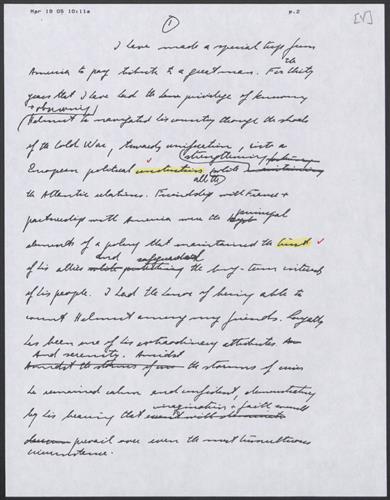 Mar 19 05 10:11a p.2
1 [V]
I have made a special trip from
the
America to pay tribute to a great man. For thirty
years that I have had the privilege of knowing
+ observing
Helmut he navigated his country through the shoals
of the Cold War, towards unification, into a
strengthening
European political construction while
all the
the Atlantic relations. Friendship with France +
principal
partnership with America were the
elements of a policy that maintained the trust
and safeguarded
of his allies the long-term interests
of his people. I had the honor of being able to
count Helmut among my friends. Loyalty
has been one of his extraordinary attributes.
And serenity. Amidst
the storms of crises
he remained calm and confident, demonstrating
imagination + faith
by his bearing that
prevail over even the most tumultuous
circumstance.